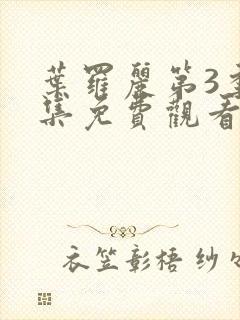 葉羅麗第3季
集免費觀看
衣笠彰梧 紗